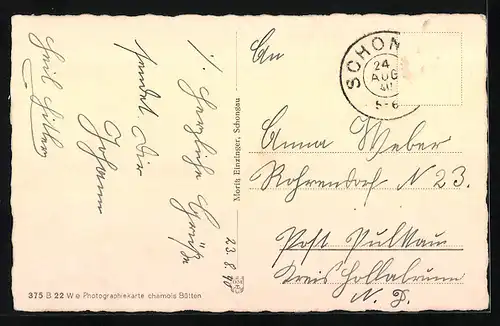 1/. Herzliche Grüße
sendet Dir
Johann
Heil Hitler
23.8.40
Moritz Einzinger, Schongau
375 B 22 W e Photographiekarte chamois Bütten
An
SCHON
24
AUG
40
5-6
Anna Weber
Rohrendorf N 23.
Post Pulkau
Kreis Hollabrunn
N. D.